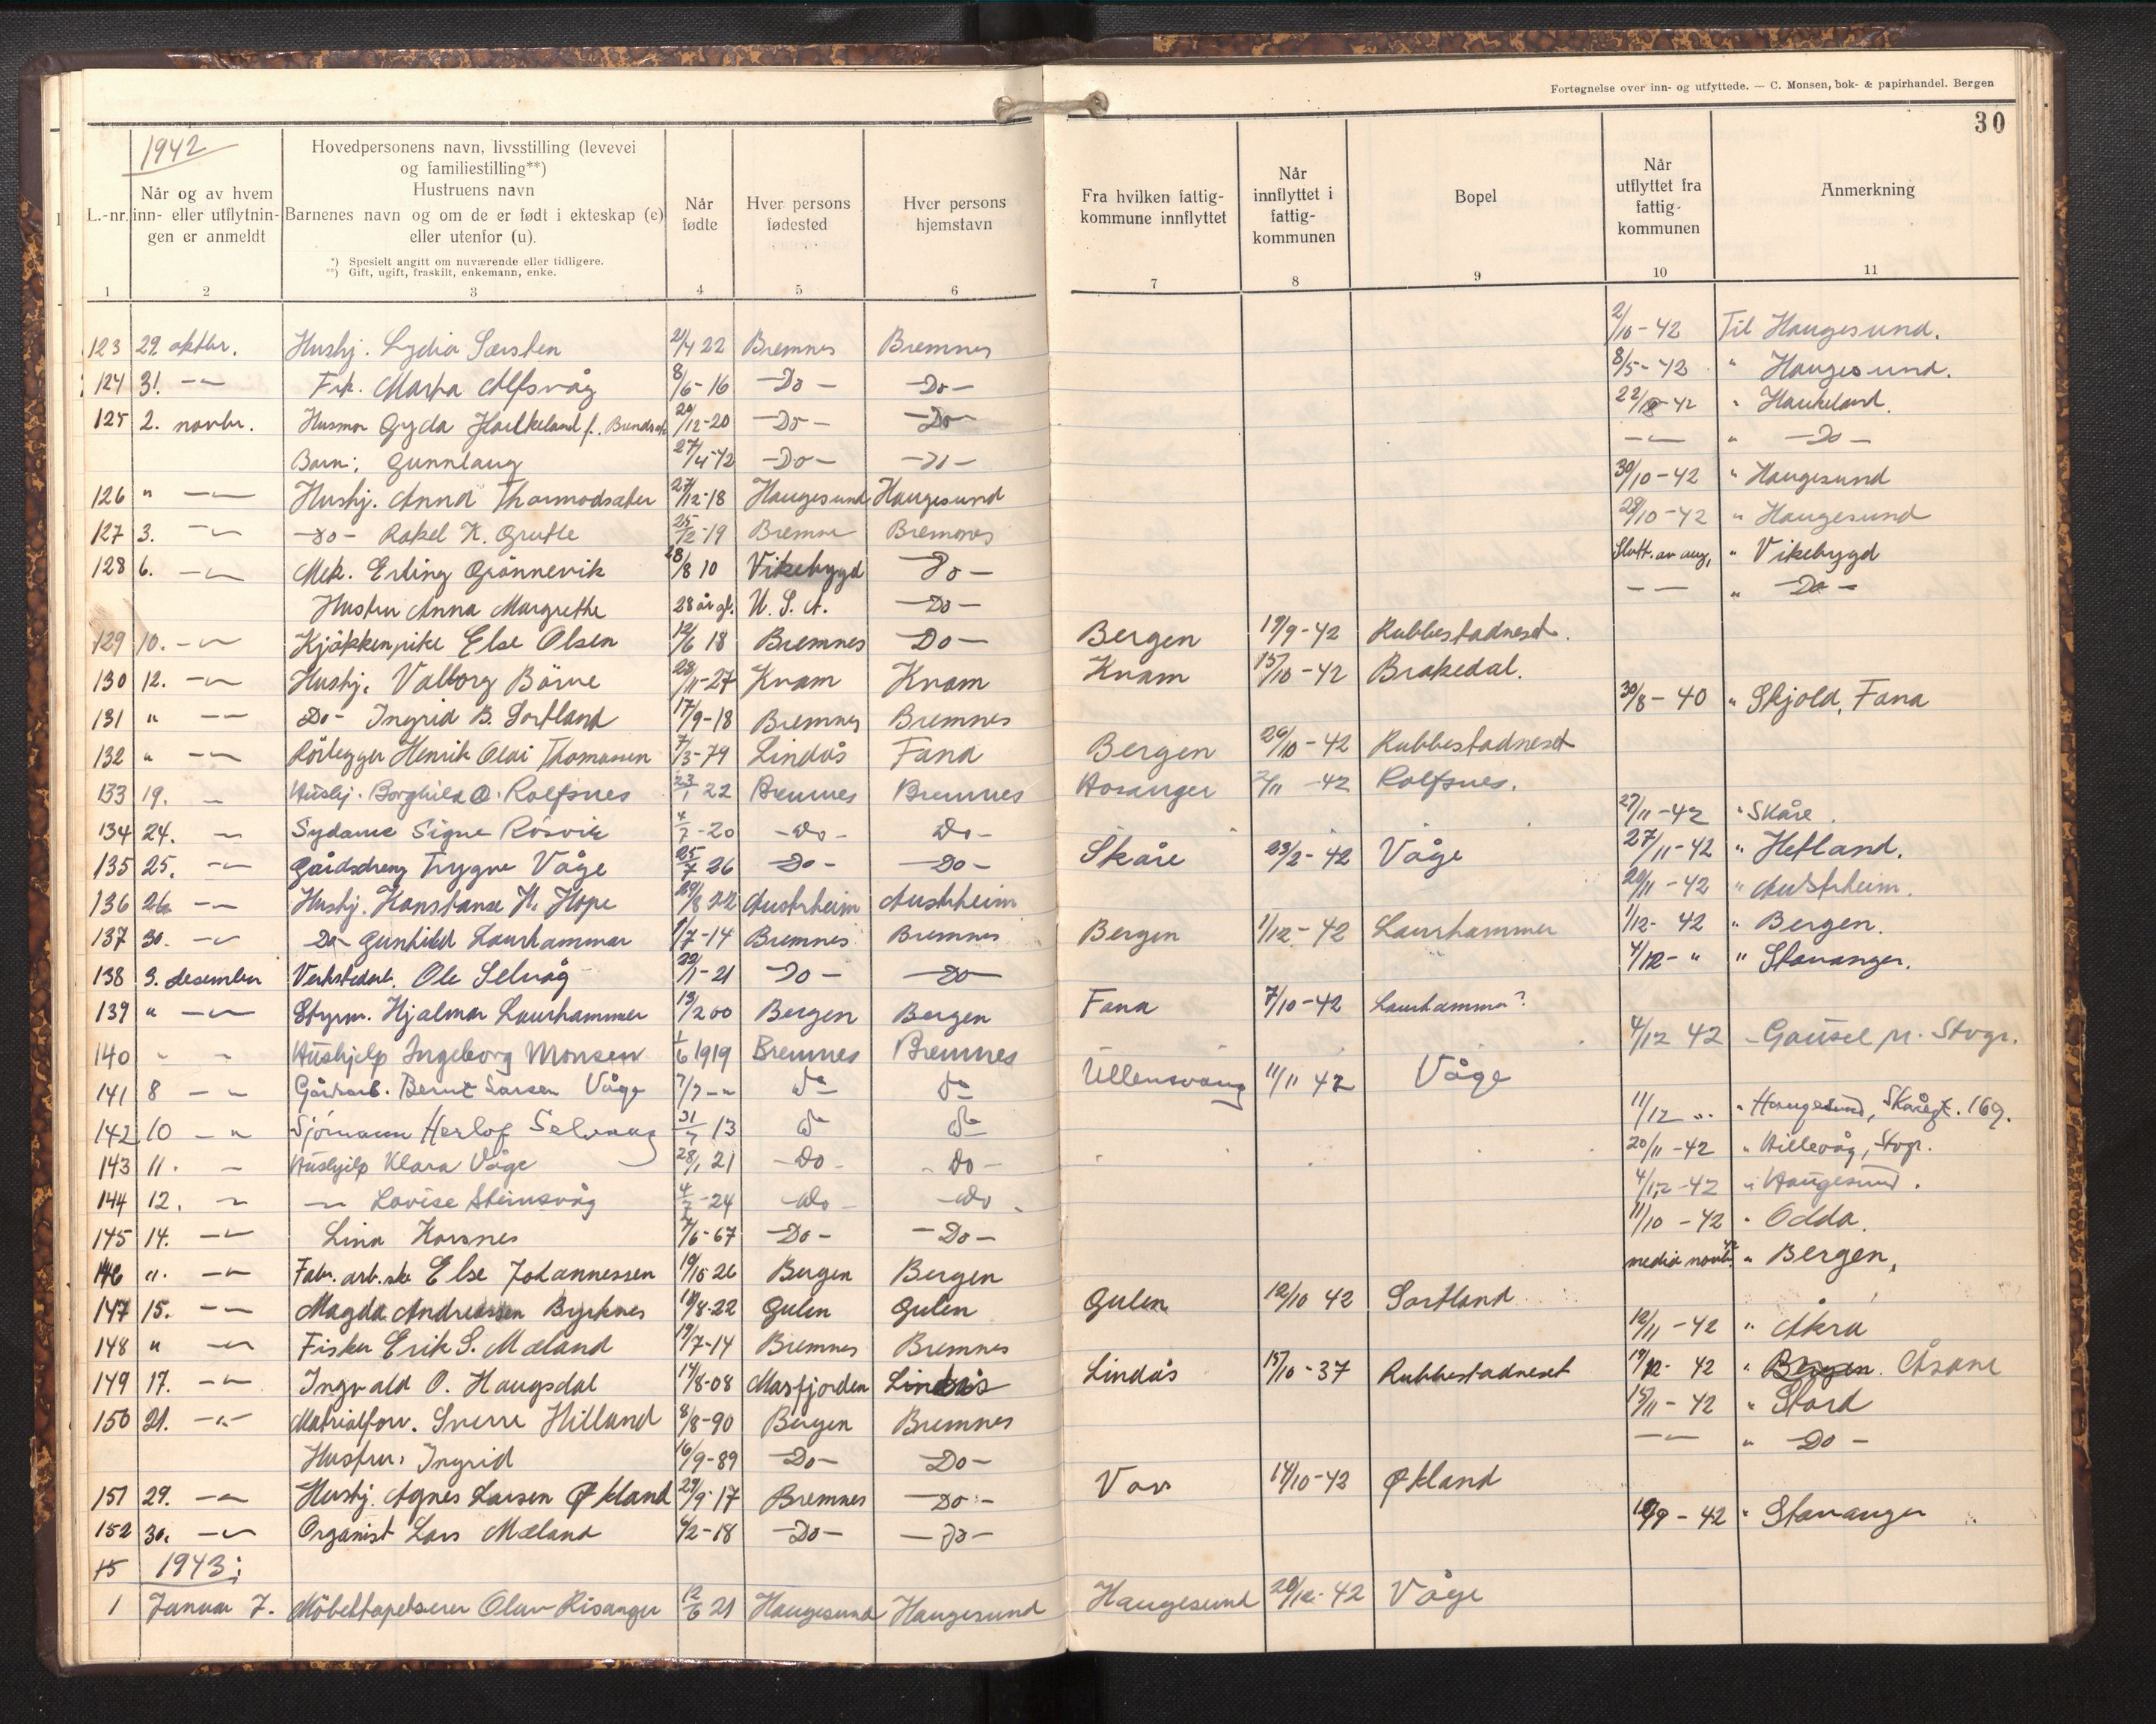 Fortegnelse over inn- og utfyttede. — C. Monsen, bok- & papirhandel. Bergen
30
1942
L.-nr. Når og av hvem inn- eller utflytningen er anmeldt
Hovedpersonens navn, livsstilling (levevei og familiestilling**)
Hustruens navn
Barnenes navn og om de er født i ekteskap (e) eller utenfor (u).
*) Spesielt angitt om nuværende eller tidligere.
**) Gift, ugift, fraskilt, enkemann, enke.
Når fødte
Hver persons fødested
Hver persons hjemstavn
Fra hvilken fattigkommune innflyttet
Når innflyttet i fattigkommunen
Bopel
Når utflyttet fra fattigkommunen
Anmerkning
1 2 3 4 5 6 7 8 9 10 11
123 29. oktbr. Hushj. Lydia Sørsten 21/4 22 Bremnes Bremnes 2/10-42 Til Haugesund.
124 31. -"- Frk. Marta Alfsvåg 8/6-16 -Do- -Do- 8/5-42 " Haugesund.
125 2. novbr. Husmor Gyda Haukeland f. 20/12-20 -Do- -Do- 22/ -42 " Haukeland.
Barn: Gunnlaug 27/4-42 -Do- -Do- -"- " -Do-
126 " -"- Hushj. Anna Thormodsæter 27/12-18 Haugesund Haugesund 30/10-42 " Haugesund
127 3. -"- -Do- Rakel K. Grutle 25/2-19 Bremne Bremnes 28/10-42 " Haugesund
128 6. -"- Mek. Erling Grønnevik 28/8 10 Vikebygd -Do- Slutt. av aug, " Vikebygd
Hustru Anna Margrethe 28 år gl. U.S.A. -Do- -"- " -Do-
129 10. -"- Kjøkkenpike Else Olsen 12/6 18 Bremnes -Do- Bergen 19/9-42 Rubbestadneset.
130 12. -"- Hushj. Valborg Børve 28/11-27 Kvam Kvam Kvam 15/10-42 Brakedal.
131 " -"- -Do- Ingrid B. Sortland 17/9-18 Bremnes Bremnes 30/8-40 " Skjold, Fana
132 " -"- Rørlegger Henrik Olai Thomassen 7/3-79 Lindås Fana Bergen 26/10-42 Rubbestadneset
133 19. " Hushj. Borghild O. Rolfsnes 23/1 22 Bremnes Bremnes Hosanger 2/11-42 Rolfsnes.
134 24. " Sydame Signe Røsvik 4/7-20 -Do- Do- 27/11-42 " Skåre.
135 25. -"- Gårdsdreng Trygve Våge 25/7 26 -Do- -Do- Skåre 23/2-42 Våge 27/11-42 " Hetland.
136 26 -"- Hushj. Konstanse H. Hope 29/8 22 Austrheim Austrheim 20/11-42 " Austrheim.
137 30. -"- -Do- Gunhild Laurhammer 1/7-14 Bremnes Bremnes Bergen 1/12-42 Laurhammer 1/12-42 " Bergen.
138 3. desember Verkstedarb. Ole Selvåg 22/1-21 -Do- -Do- 4/12-" " Stavanger.
139 " -"- Styrm. Hjalmar Laurhammer 13/2 00 Bergen Bergen Fana 7/10-42 Laurhammer?
140 " " Hushjelp Ingeborg Monsen 1/6 1919 Bremnes Bremnes 4/12 42 - Gausel pr. Stvgr.
141 8 -"- Gårdsarb. Bernt Larsen Våge 7/7-" do do Ullensvang 11/11 42 Våge
142 10 -"- Sjømann Herlof Selvaag 31/7 13 do do 11/12 " " Haugesund, Skåregt. 169.
143 11. - Hushjelp Klara Våge 28/1 21 -Do- -Do- 20/11-42 " Hillevåg, Stvgr.
144 12. " -"- Lovise Steinsvåg 4/7-24 -Do- -Do- 4/12-42 " Haugesund.
145 14. -"- Lina Korsnes 7/6-67 -Do- -Do- 11/10-42 " Odda.
146 " -"- Fabr. arb.ske Else Johannessen 19/10 26 Bergen Bergen medio novbr. 42 " Bergen,
147 15. -"- Magda Andreassen Byrknes 18/8-22 Gulen Gulen Gulen 12/10 42 Sortland
148 " -"- Fisker Erik S. Mæland 19/7-14 Bremnes Bremnes 12/11-42 " Åkra
149 17. -"- Ingvald O. Haugsdal 14/8-08 Masfjorden Lindås Lindås 15/10-37 Rubbestadneset 19/12-42 " Bergen. Åsane
150 21. -"- Matrialforv. Sverre Hilland 8/8-90 Bergen Bremnes 15/11-42 " Stord
Hustru: Ingrid 16/9-89 -Do- -Do- -"- " -Do-
151 29. -"- Hushj. Agnes Larsen Økland 29/9-17 Bremnes -Do- Voss 14/10-42 Økland
152 30. -"- Organist Lars Mæland 6/2-18 -Do- -Do- /9-42 " Stavanger
15 1943:
1 Januar 7. Møbeltapetserer Olav Risanger 12/6 21 Haugesund Haugesund Haugesund 20/12-42 Våge